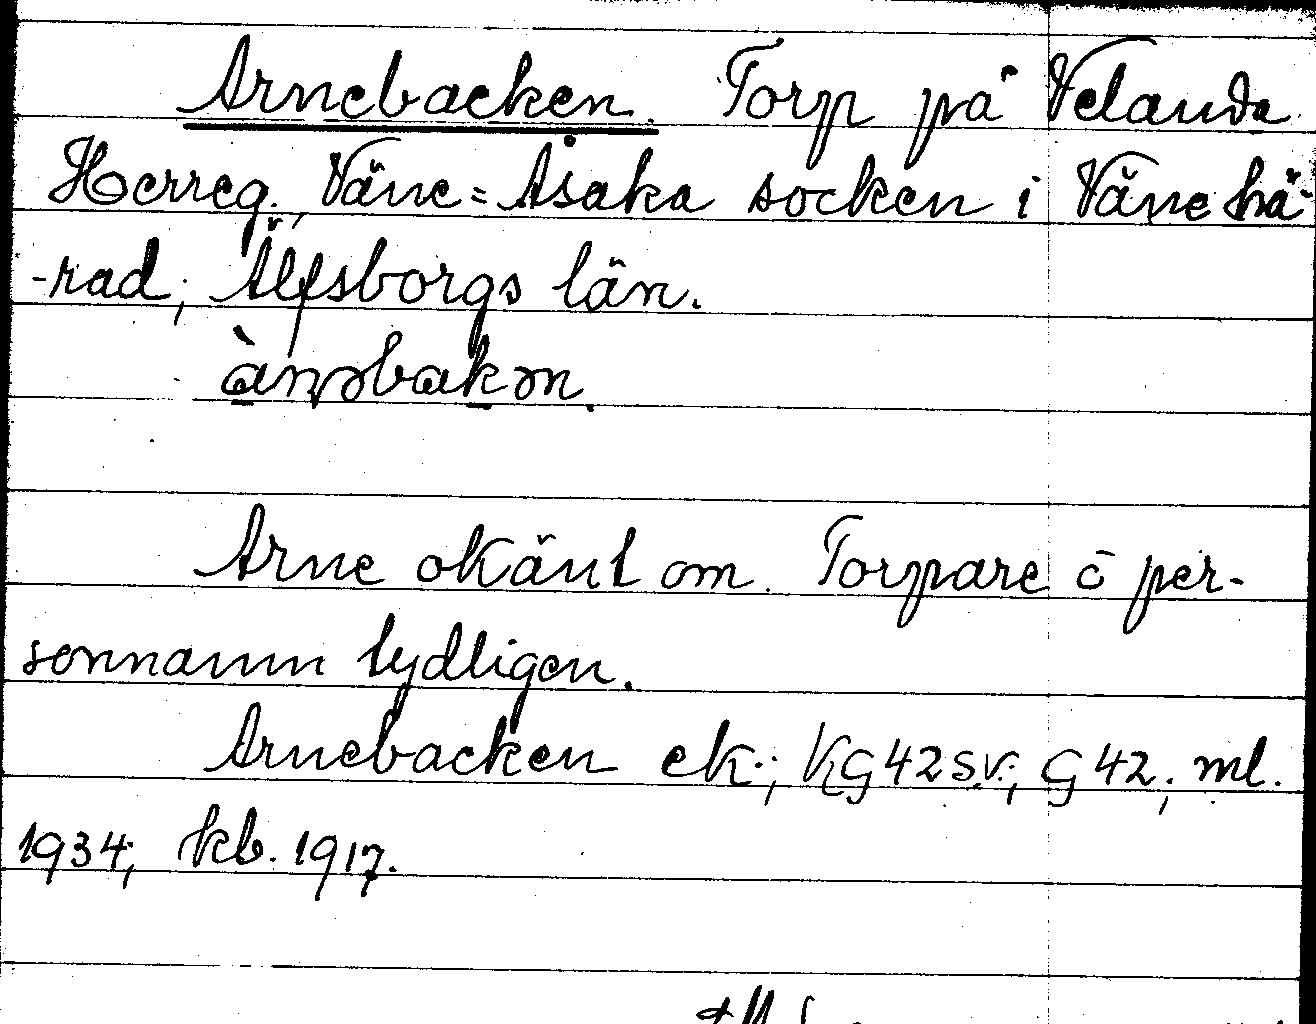 Arnebacken. Torp på Velanda
Herreg., Väne=Åsaka socken i Väne hä-
-rad, Älfsborgs län.
Arne okänt om. Torpare ō per-
sonnamn tydligen.
Arnebacken ek.; KG42SV.; G42; ml.
1934; kb. 1917.